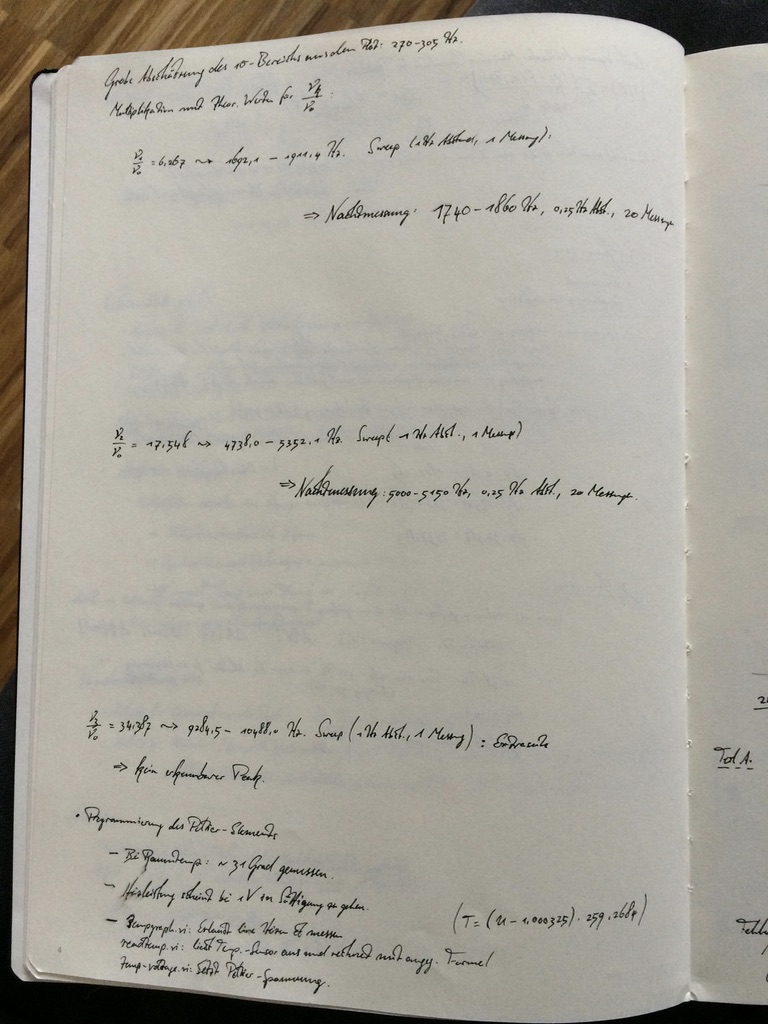 Grobe Abschätzung des 1σ-Bereichs aus dem Plot: 270-305 Hz.
Multiplikation mit theor. Werten für ν_k/ν_0:
ν_1/ν_0 = 6,267 ⤳ 1692,1 - 1911,4 Hz. Sweep (1 Hz Abstand, 1 Messung):
⇒ Nachmessung: 1740-1860 Hz, 0,25 Hz Abst., 20 Messungen
ν_2/ν_0 = 17,548 ⤳ 4738,0 - 5352,1 Hz. Sweep (1 Hz Abst., 1 Messung)
⇒ Nachmessung: 5000-5150 Hz, 0,25 Hz Abst., 20 Messungen.
ν_3/ν_0 = 34,387 ⤳ 9284,5 - 10488,0 Hz. Sweep (1 Hz Abst., 1 Messung):
⇒ kein erkennbarer Peak.
• Programmierung des Peltier-Elements
- Bei Raumtemp: ~ 31 Grad gemessen.
- Heizleistung scheint bei 1V in Sättigung zu gehen.
- Tempgraph.vi: Erlaubt T messen
(T = (U - 1,000325) · 259,2684)
readtemp.vi: liest Temp.-Sensor aus und rechnet mit angg. Formel
Temp-voltage.vi: Setzt Peltier-Spannung.
Teil A.